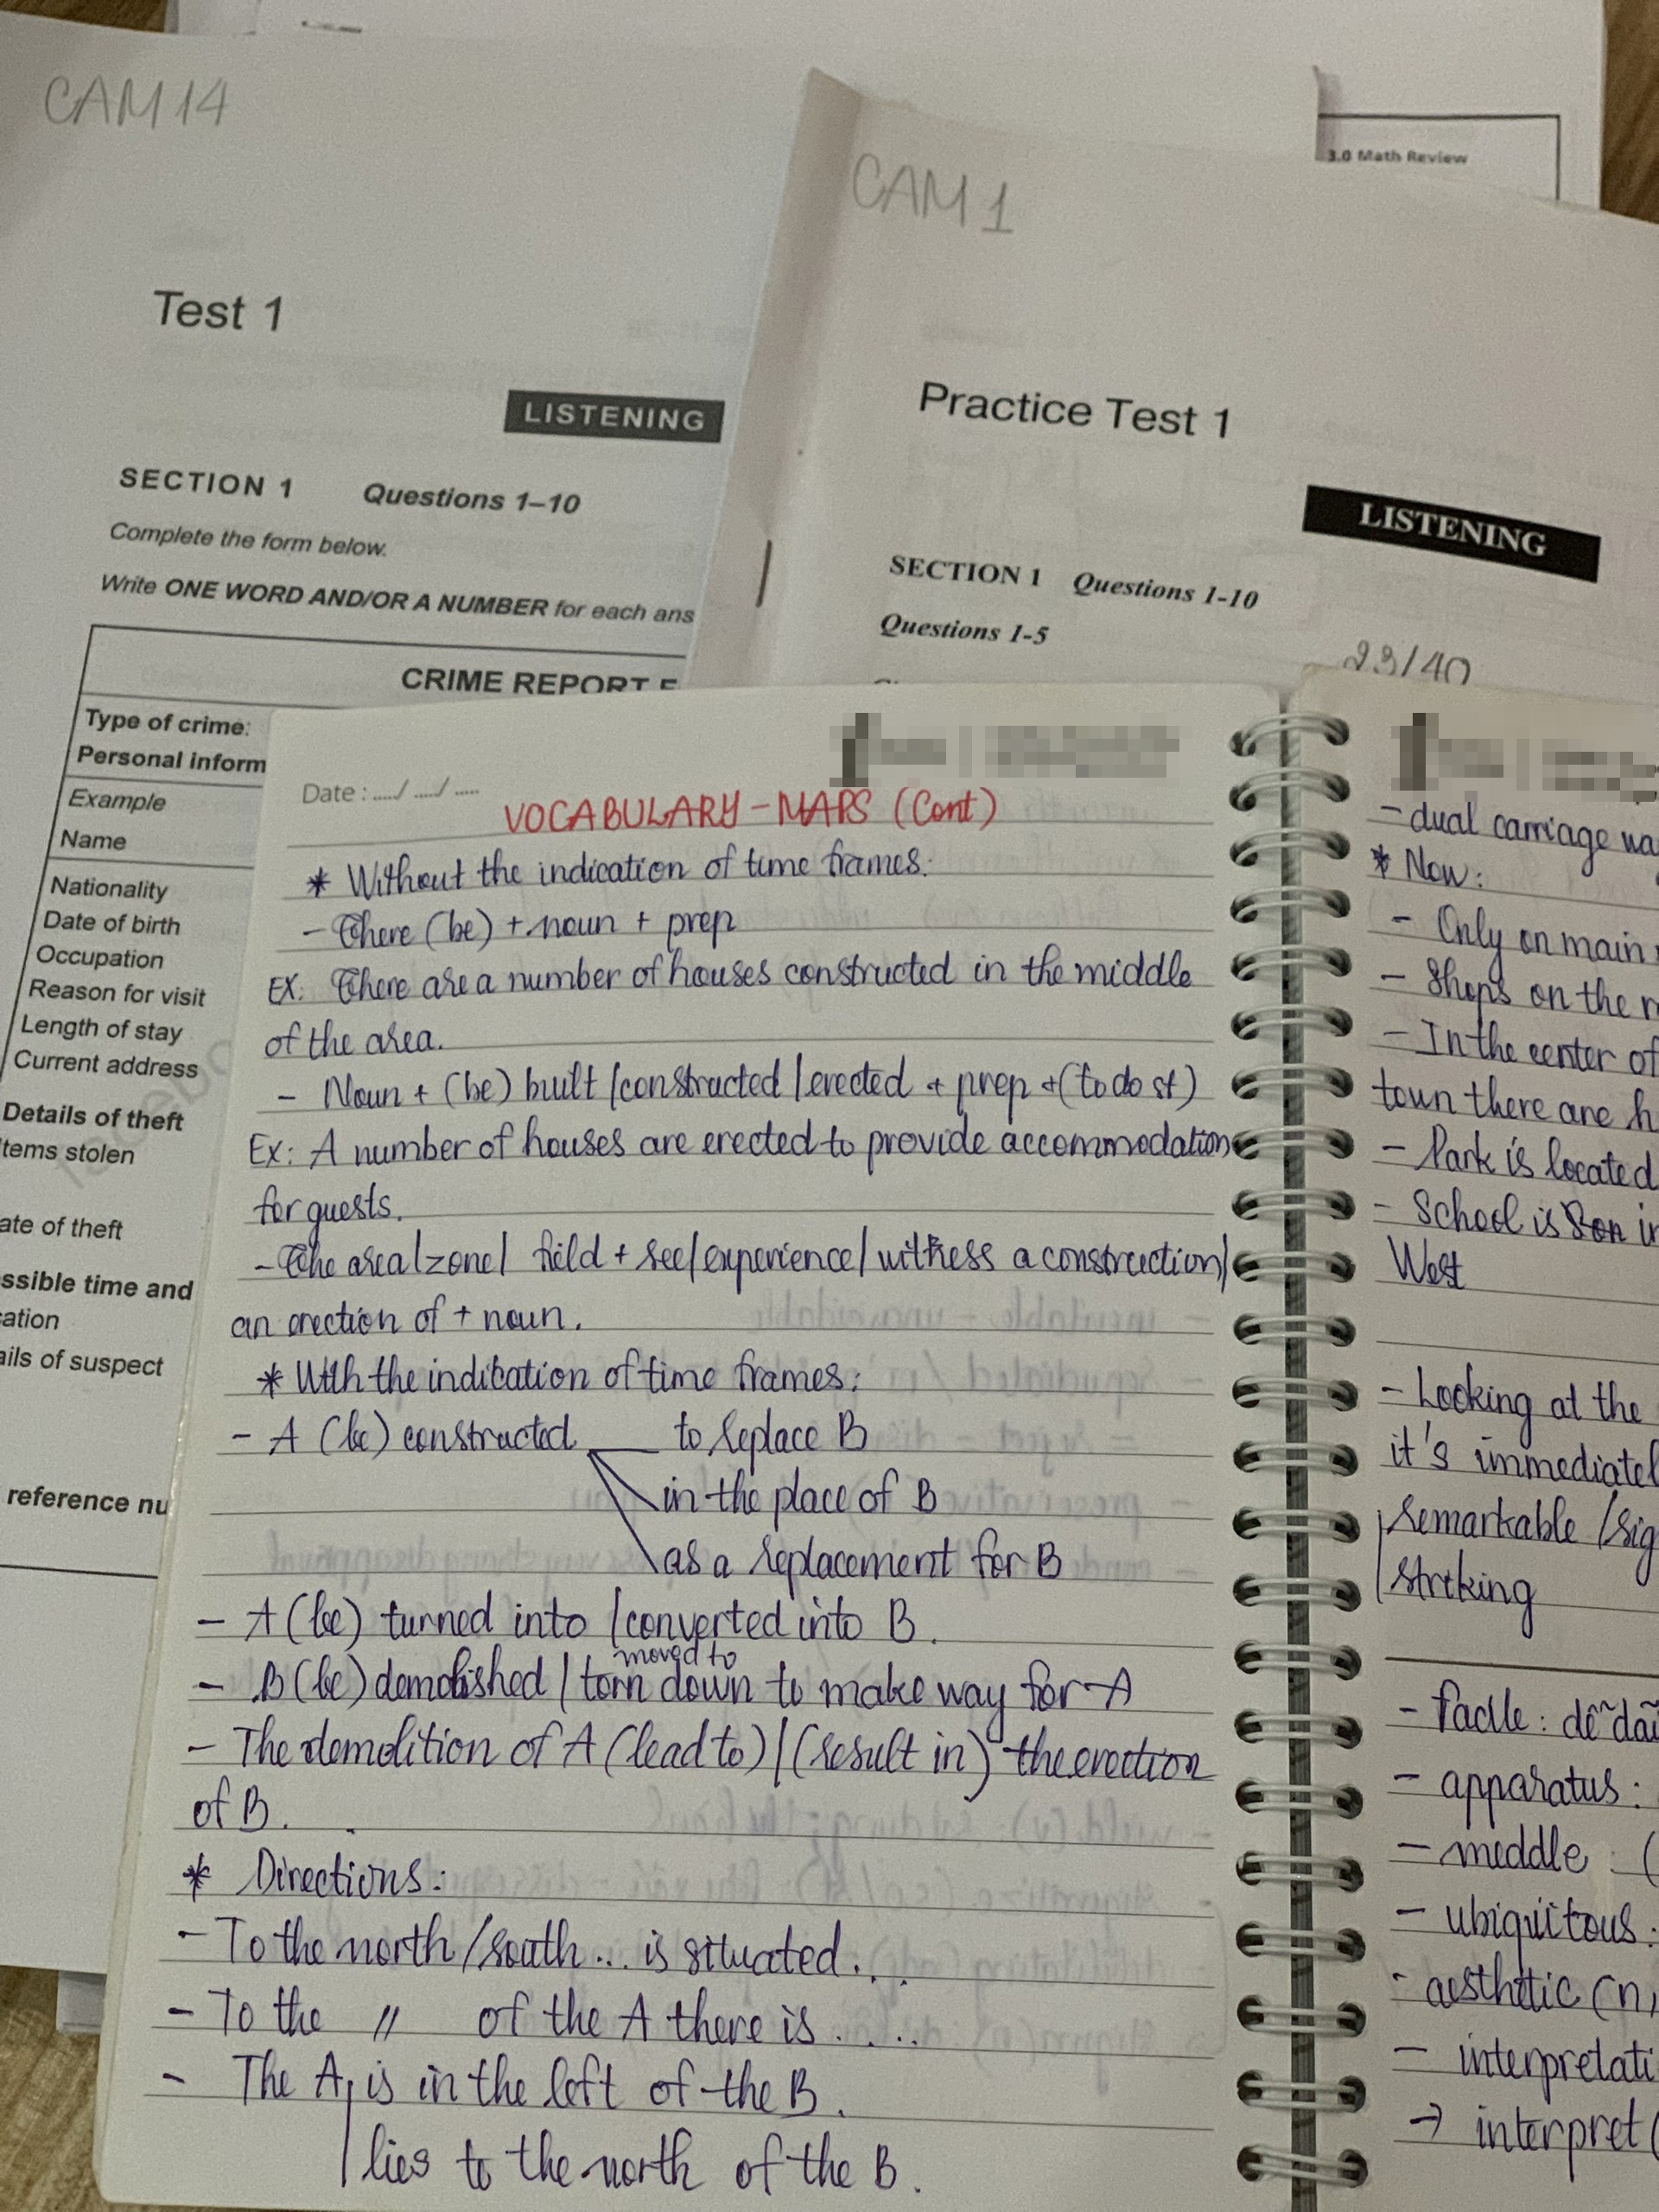 CAM 14
Test 1
LISTENING
SECTION 1 Questions 1–10
Complete the form below.
Write ONE WORD AND/OR A NUMBER for each ans
CRIME REPORT F
Type of crime:
Personal inform
Example
Name
Nationality
Date of birth
Occupation
Reason for visit
Length of stay
Current address
Details of theft
tems stolen
ate of theft
ssible time and
ation
ails of suspect
reference nu
3.0 Math Review
CAM 1
Practice Test 1
LISTENING
SECTION 1 Questions 1-10
Questions 1-5
23/40
Date : ...../ ...../ .....
VOCABULARY - MAPS (Cont)
* Without the indication of time frames:
- There (be) + noun + prep
EX: There are a number of houses constructed in the middle
of the area.
- Noun + (be) built /constructed /erected + prep + (to do st)
Ex: A number of houses are erected to provide accommodation
for guests.
- The area/zone/ field + see/experience/ witness a construction/
an erection of + noun.
* With the indication of time frames:
- A (be) constructed to replace B
in the place of B
as a replacement for B
- A (be) turned into /converted into B.
moved to
- B (be) demolished / torn down to make way for A
- The demolition of A (lead to) / (result in) the erection
of B.
* Directions:
- To the north /south ... is situated...
- To the " of the A there is .....
- The A is in the left of the B.
lies to the north of the B.
- dual carriage wa
* Now:
- Only on main
- Shops on the r
- In the center of
town there are h
- Park is located
- School is in
West
- Looking at the
it's immediatel
remarkable /sig
striking
- facile: dễ dã
- apparatus:
- meddle : (
- ubiquitous:
- aesthetic (n,
- interpretati
→ interpret (